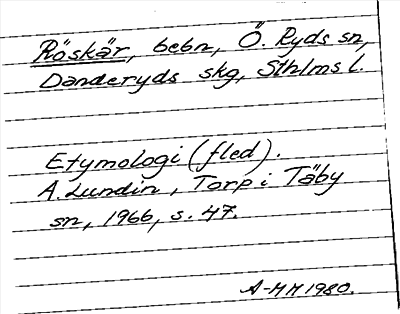 Röskär, bebn, Ö. Ryds sn,
Danderyds skg, Sthlms l.
Etymologi (fled).
A. Lundin, Torp i Täby
sn, 1966, s. 47.
A-MM 1980.